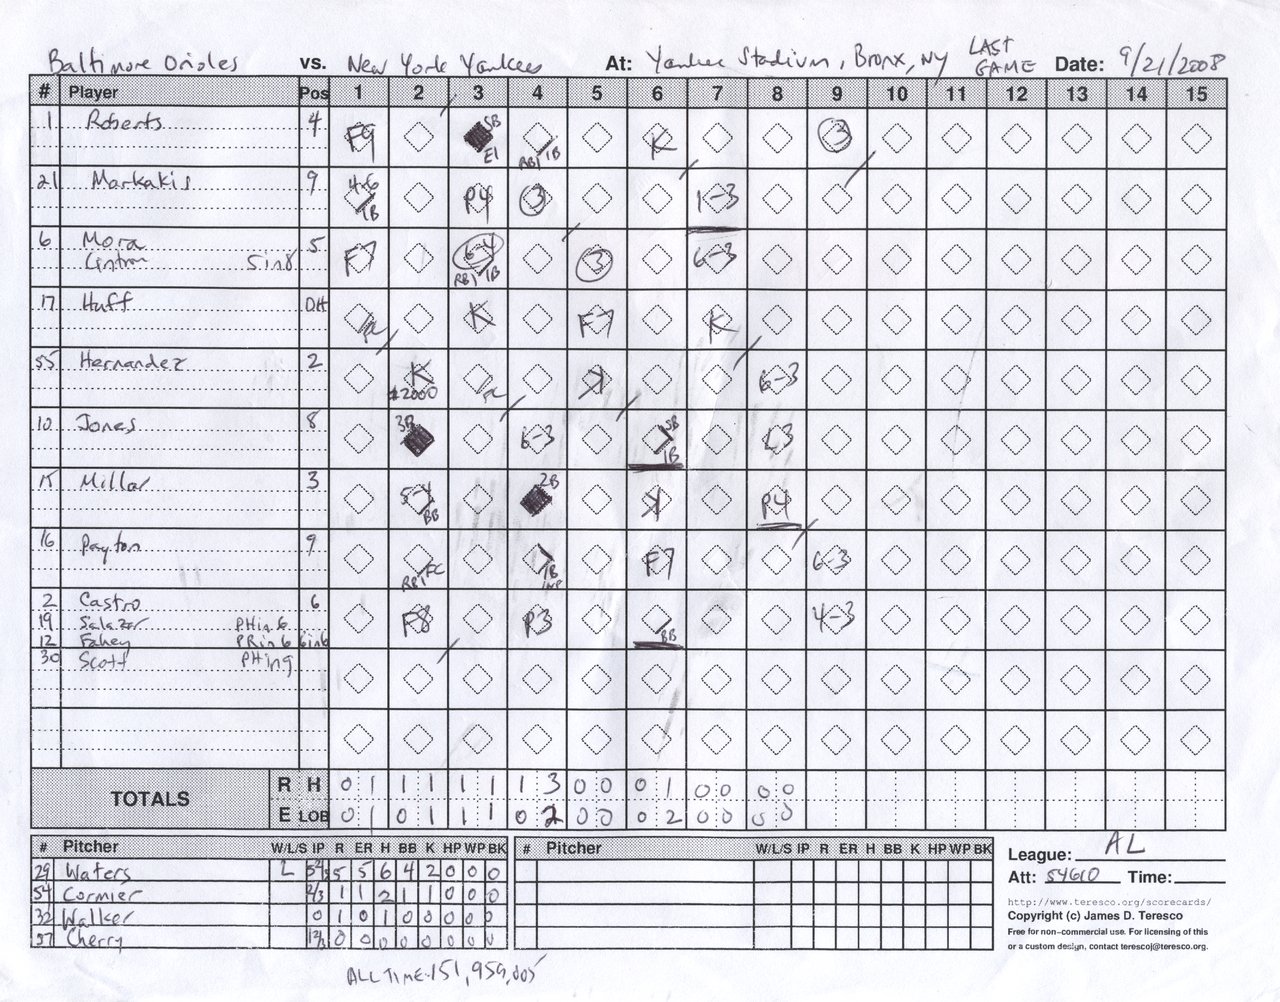 Baltimore Orioles vs. New York Yankees At: Yankee Stadium, Bronx, NY LAST GAME Date: 9/21/2008
# Player Pos 1 2 3 4 5 6 7 8 9 10 11 12 13 14 15
1 Roberts 4 F9 SB E1 RBI 1B K 3
21 Markakis 9 4-6 1B P4 3 1-3
6 Mora 5 F7 6-4 RBI 1B 3 6-3
Cintron 5in8
17 Huff DH K F7 K
55 Hernandez 2 K #2000 K 6-3
10 Jones 8 3B 6-3 SB 1B L3
15 Millar 3 5-4 BB 2B K P4
16 Payton 9 RBI FC 1B INF F7 6-3
2 Castro 6 F8 P3 BB 4-3
19 Salazar PHin6
12 Fahey PRin6 6in6
30 Scott PHin9
TOTALS R H 0 1 1 1 1 1 1 3 0 0 0 1 0 0 0 0
E LOB 0 1 0 1 1 1 0 2 0 0 0 2 0 0 0 0
# Pitcher W/L/S IP R ER H BB K HP WP BK # Pitcher W/L/S IP R ER H BB K HP WP BK
29 Waters L 5 2/3 5 5 6 4 2 0 0 0
54 Cormier 2/3 1 1 2 1 1 0 0 0
32 Walker 0 1 0 1 0 0 0 0 0
37 Cherry 1 2/3 0 0 0 0 0 0 0 0
League: AL
Att: 54610 Time:
http://www.teresco.org/scorecards/
Copyright (c) James D. Teresco
Free for non-commercial use. For licensing of this
or a custom design, contact terescoj@teresco.org.
ALL TIME: 151,959,005